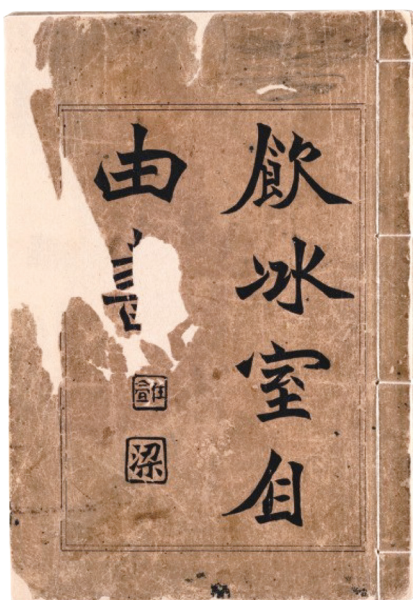 飲冰室自
由書
梁